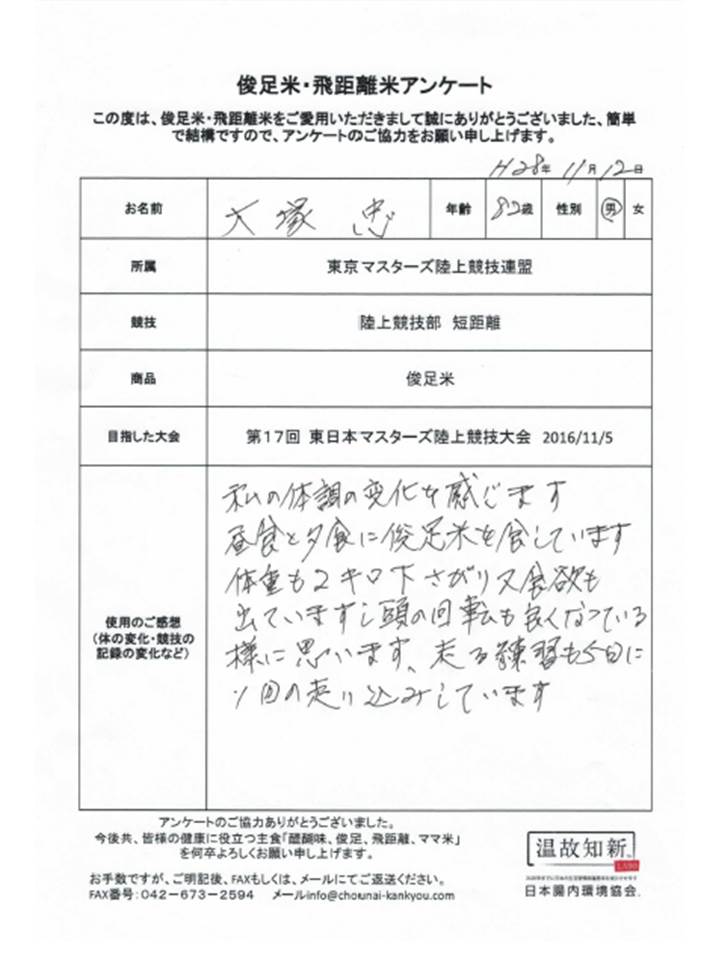 俊足米・飛距離米アンケート
この度は、俊足米・飛距離米をご愛用いただきまして誠にありがとうございました、簡単
で結構ですので、アンケートのご協力をお願い申し上げます。
H28年 11月 12日
お名前 大塚 忠 年齢 82歳 性別 男 女
所属 東京マスターズ陸上競技連盟
競技 陸上競技部 短距離
商品 俊足米
目指した大会 第17回 東日本マスターズ陸上競技大会 2016/11/5
使用のご感想
(体の変化・競技の
記録の変化など)
私の体調の変化を感じます
昼食と夕食に俊足米を食しています
体重も2キロ下さがり又食欲も
出ていますし頭の回転も良くなっている
様に思います、走る練習も5日に
1回の走り込みしています
アンケートのご協力ありがとうございました。
今後共、皆様の健康に役立つ主食「醍醐味、俊足、飛距離、ママ米」
を何卒よろしくお願い申し上げます。
お手数ですが、ご明記後、FAXもしくは、メールにてご返送ください。
FAX番号:042-673-2594 メールinfo@chounai-kankyou.com
温故知新
LABO
日本腸内環境協会.